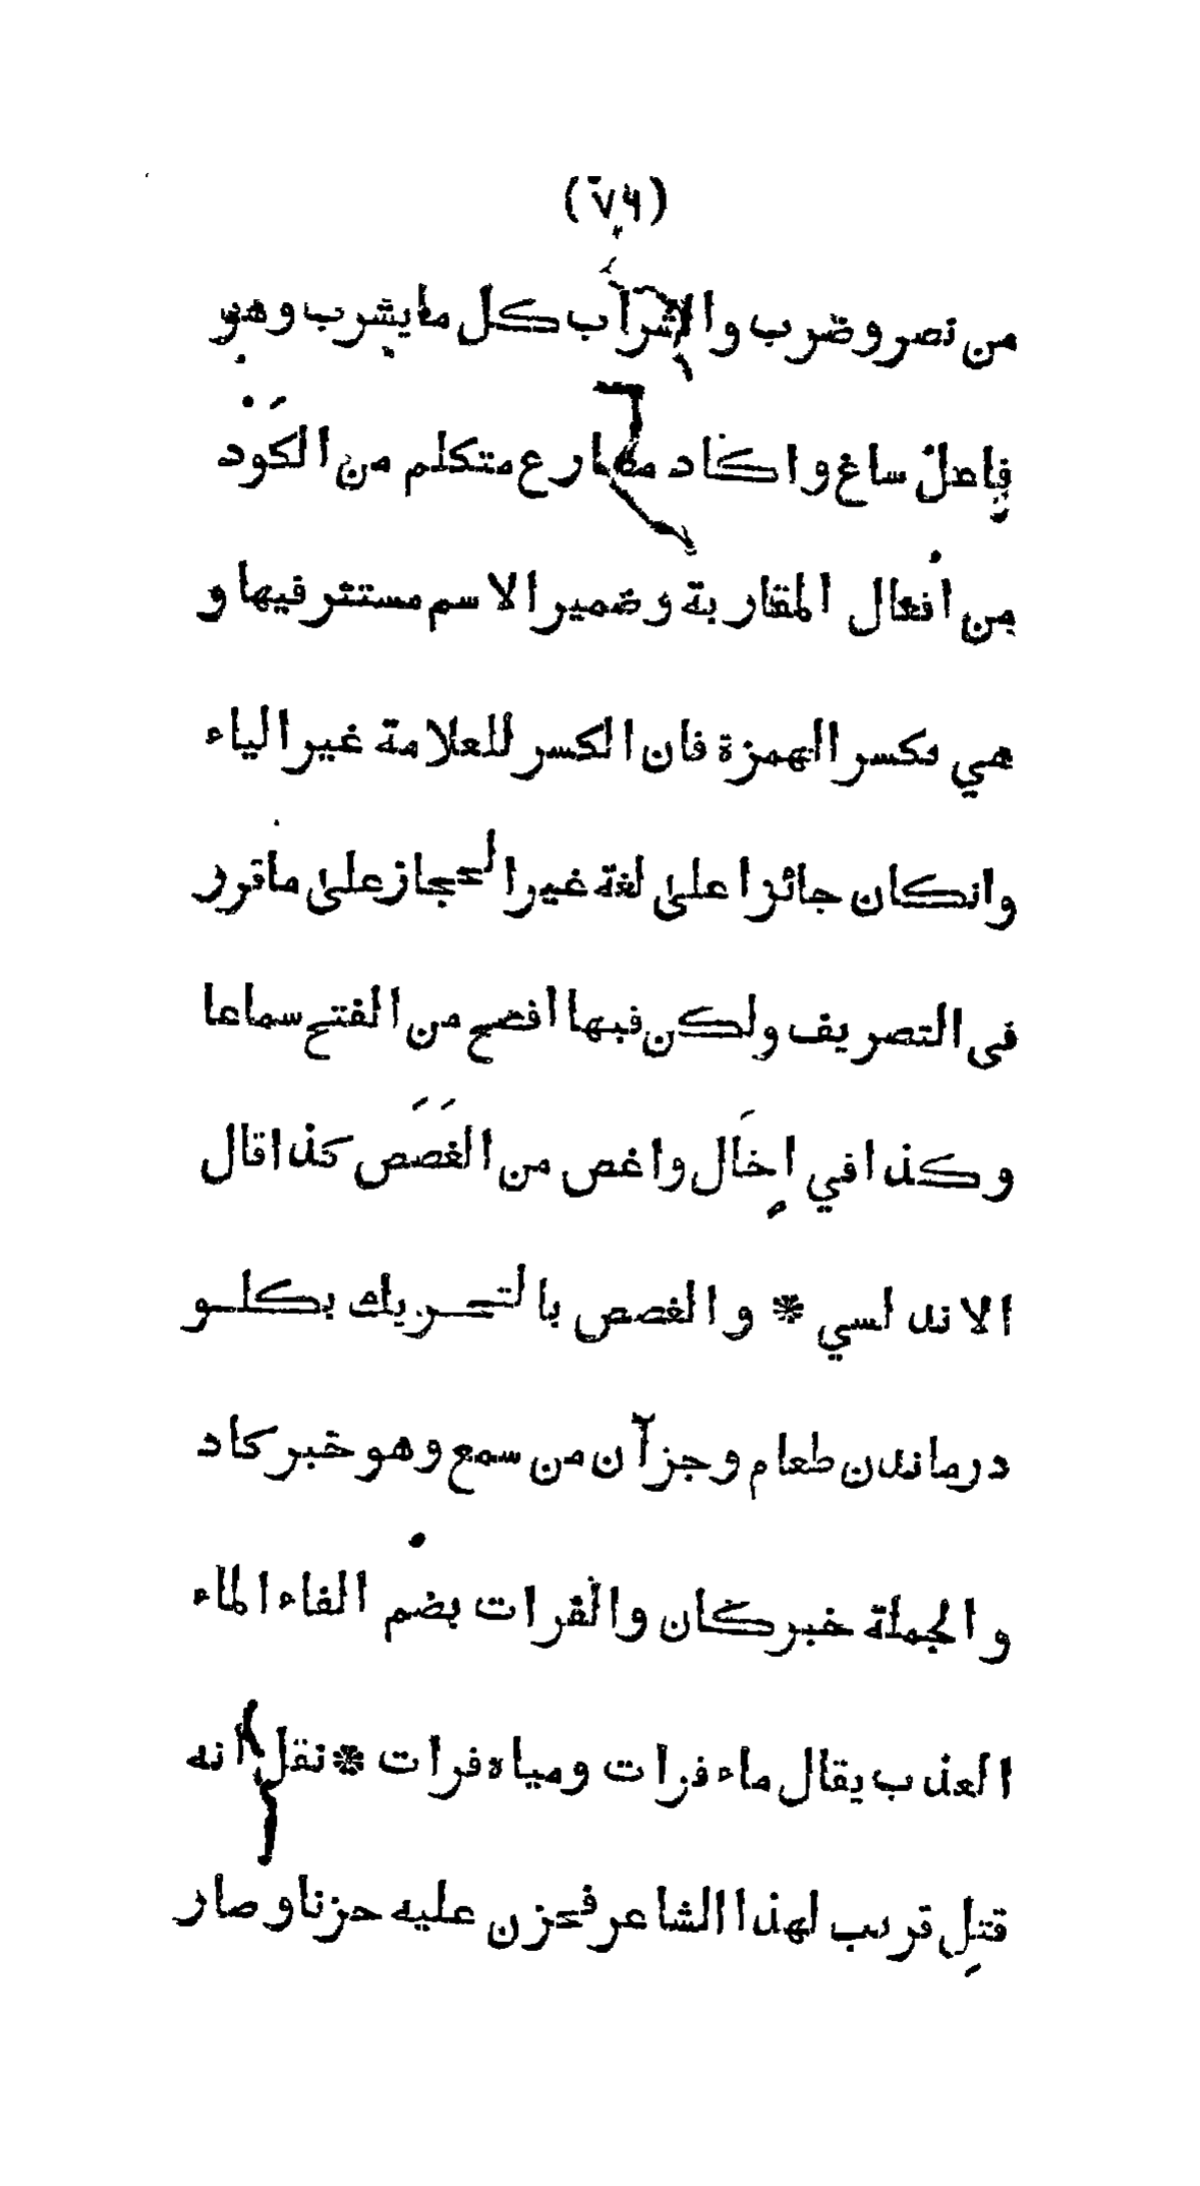 (٧٦)
من نصر وضرب والشراب كل ما يشرب وهو
فاعلُ ساغ واكاد مضارع متكلم من الكَوْد
من افعال المقاربة وضمير الاسم مستتر فيها و
هي بكسر الهمزة فان الكسر للعلامة غير الياء
وانكان جائزا على لغة غير الحجاز على ما قرر
فى التصريف ولكن فيها افصح من الفتح سماعا
وكذا في اِخَال واغص من الغَصَص كذا قال
الاندلسي * والغصص بالتحريك بكلو
درماندن طعام وجزآن من سمع وهو خبر كاد
والجملة خبر كان والفرات بضم الفاء الماء
العذب يقال ماء فرات ومياه فرات * نقل انه
قتِل قريب لهذا الشاعر فحزن عليه حزنا وصار